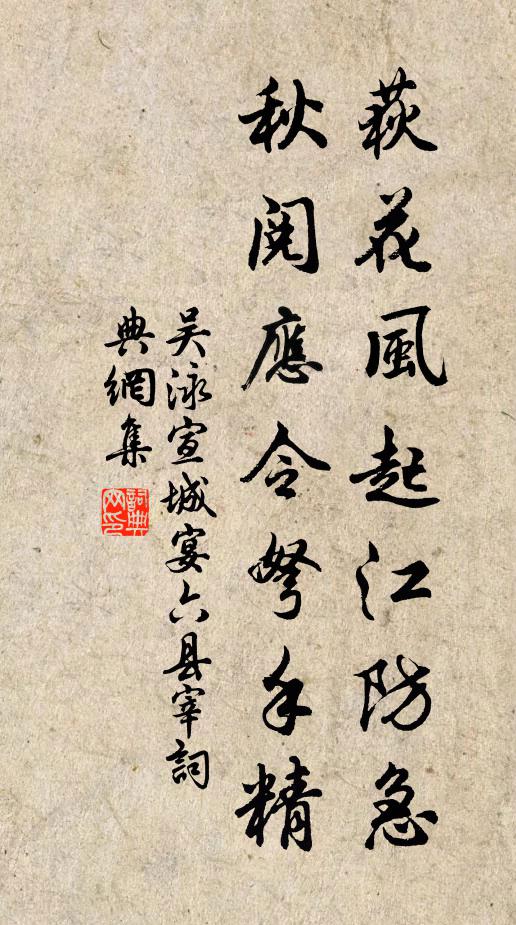 荻花風起江防急
秋閱應令弩手精
吴泳宣城宴六县宰詞
典網集
詞典
网印